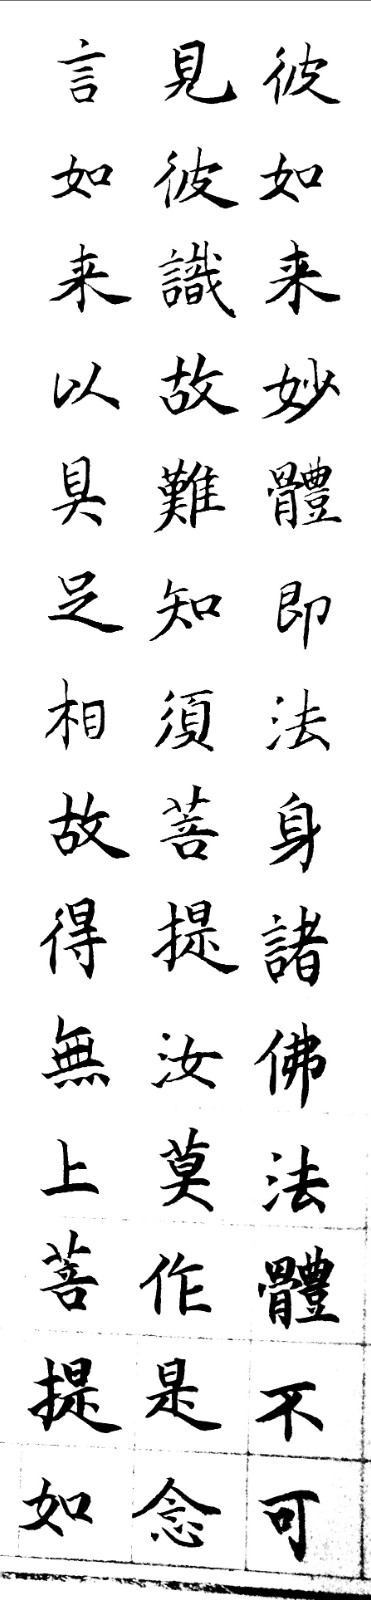 彼如来妙體即法身諸佛法體不可
見彼識故難知須菩提汝莫作是念
言如来以具足相故得無上菩提如